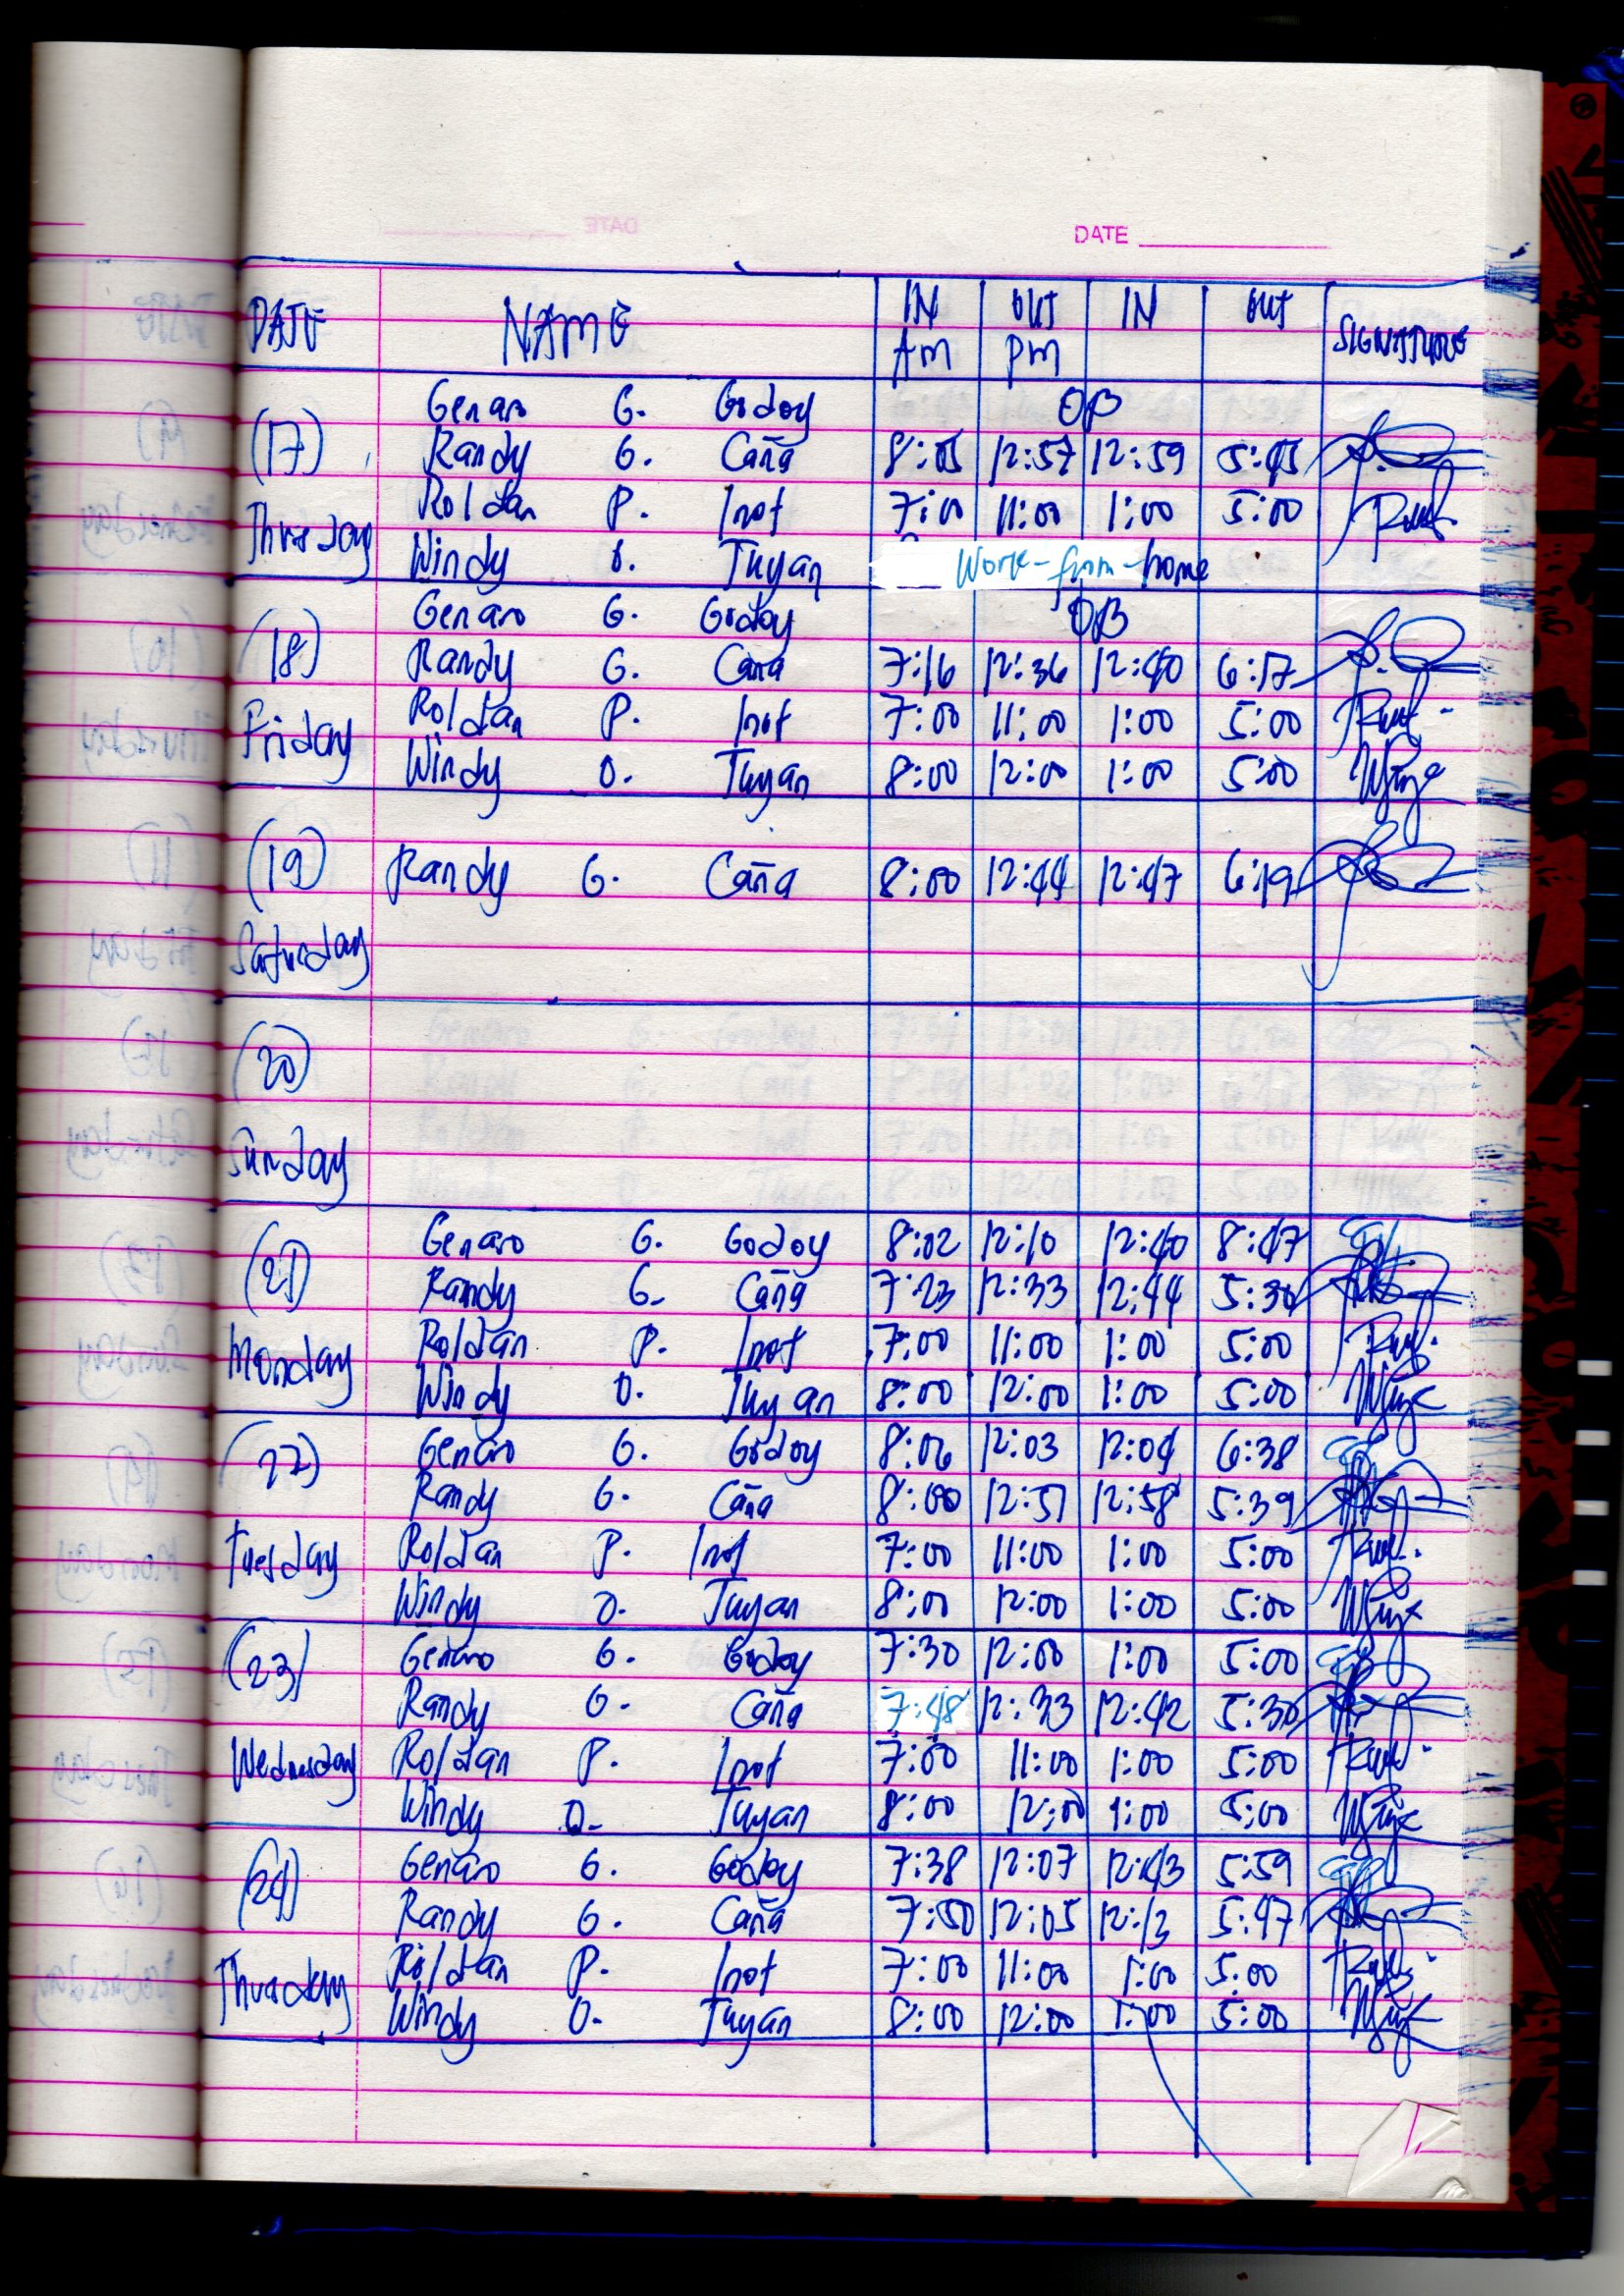 DATE
DATE NAME IN AM OUT PM IN OUT SIGNATURE
(17) Genaro G. Godoy OB
Randy G. Caña 8:05 12:57 12:59 5:45
Thursday Roldan P. Inot 7:00 11:00 1:00 5:00
Windy O. Tuyan Work-from-home
(18) Genaro G. Godoy OB
Randy G. Caña 7:16 12:36 12:40 6:17
Friday Roldan P. Inot 7:00 11:00 1:00 5:00
Windy O. Tuyan 8:00 12:00 1:00 5:00
(19) Randy G. Caña 8:00 12:44 12:47 6:19
Saturday
(20)
Sunday
(21) Genaro G. Godoy 8:02 12:10 12:40 8:47
Randy G. Caña 7:23 12:33 12:44 5:30
Monday Roldan P. Inot 7:00 11:00 1:00 5:00
Windy O. Tuyan 8:00 12:00 1:00 5:00
(22) Genaro G. Godoy 8:06 12:03 12:04 6:38
Randy G. Caña 8:00 12:51 12:58 5:39
Tuesday Roldan P. Inot 7:00 11:00 1:00 5:00
Windy O. Tuyan 8:00 12:00 1:00 5:00
(23) Genaro G. Godoy 7:30 12:00 1:00 5:00
Randy G. Caña 7:48 12:33 12:42 5:30
Wednesday Roldan P. Inot 7:00 11:00 1:00 5:00
Windy O. Tuyan 8:00 12:00 1:00 5:00
(24) Genaro G. Godoy 7:38 12:07 12:43 5:59
Randy G. Caña 7:50 12:05 12:13 5:47
Thursday Roldan P. Inot 7:00 11:00 1:00 5:00
Windy O. Tuyan 8:00 12:00 1:00 5:00